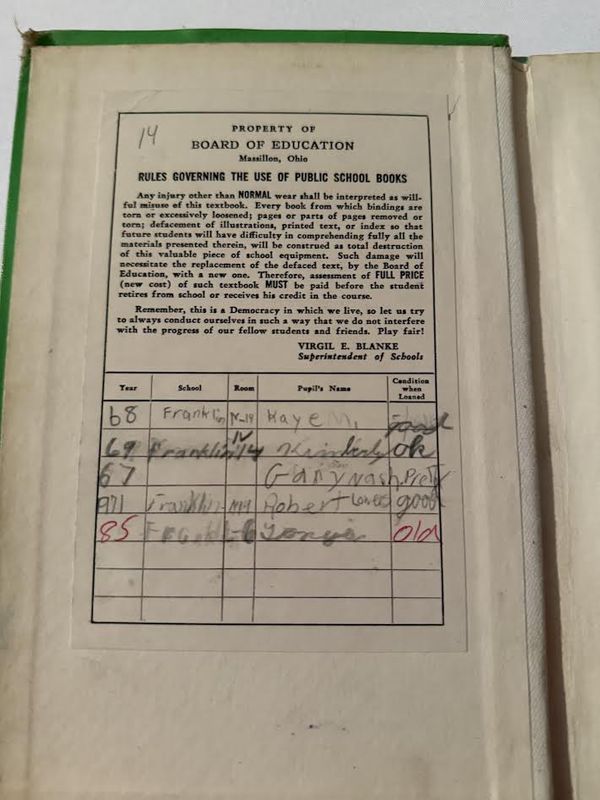 14
PROPERTY OF
BOARD OF EDUCATION
Massillon, Ohio
RULES GOVERNING THE USE OF PUBLIC SCHOOL BOOKS
Any injury other than NORMAL wear shall be interpreted as wil-
ful misuse of this textbook. Every book from which bindings are
torn or excessively loosened; pages or parts of pages removed or
torn; defacement of illustrations, printed text, or index so that
future students will have difficulty in comprehending fully all the
materials presented therein, will be construed as total destruction
of this valuable piece of school equipment. Such damage will
necessitate the replacement of the defaced text, by the Board of
Education, with a new one. Therefore, assessment of FULL PRICE
(new cost) of such textbook MUST be paid before the student
retires from school or receives his credit in the course.
Remember, this is a Democracy in which we live, so let us try
to always conduct ourselves in such a way that we do not interfere
with the progress of our fellow students and friends. Play fair!
VIRGIL E. BLANKE
Superintendent of Schools
Year School Room Pupil's Name Condition when Loaned
68 Franklin N-14 Kaye M. good
69 Franklin 14 Kimberly ok
67 Gary Nash Pretty
971 Franklin Robert good
85 Old